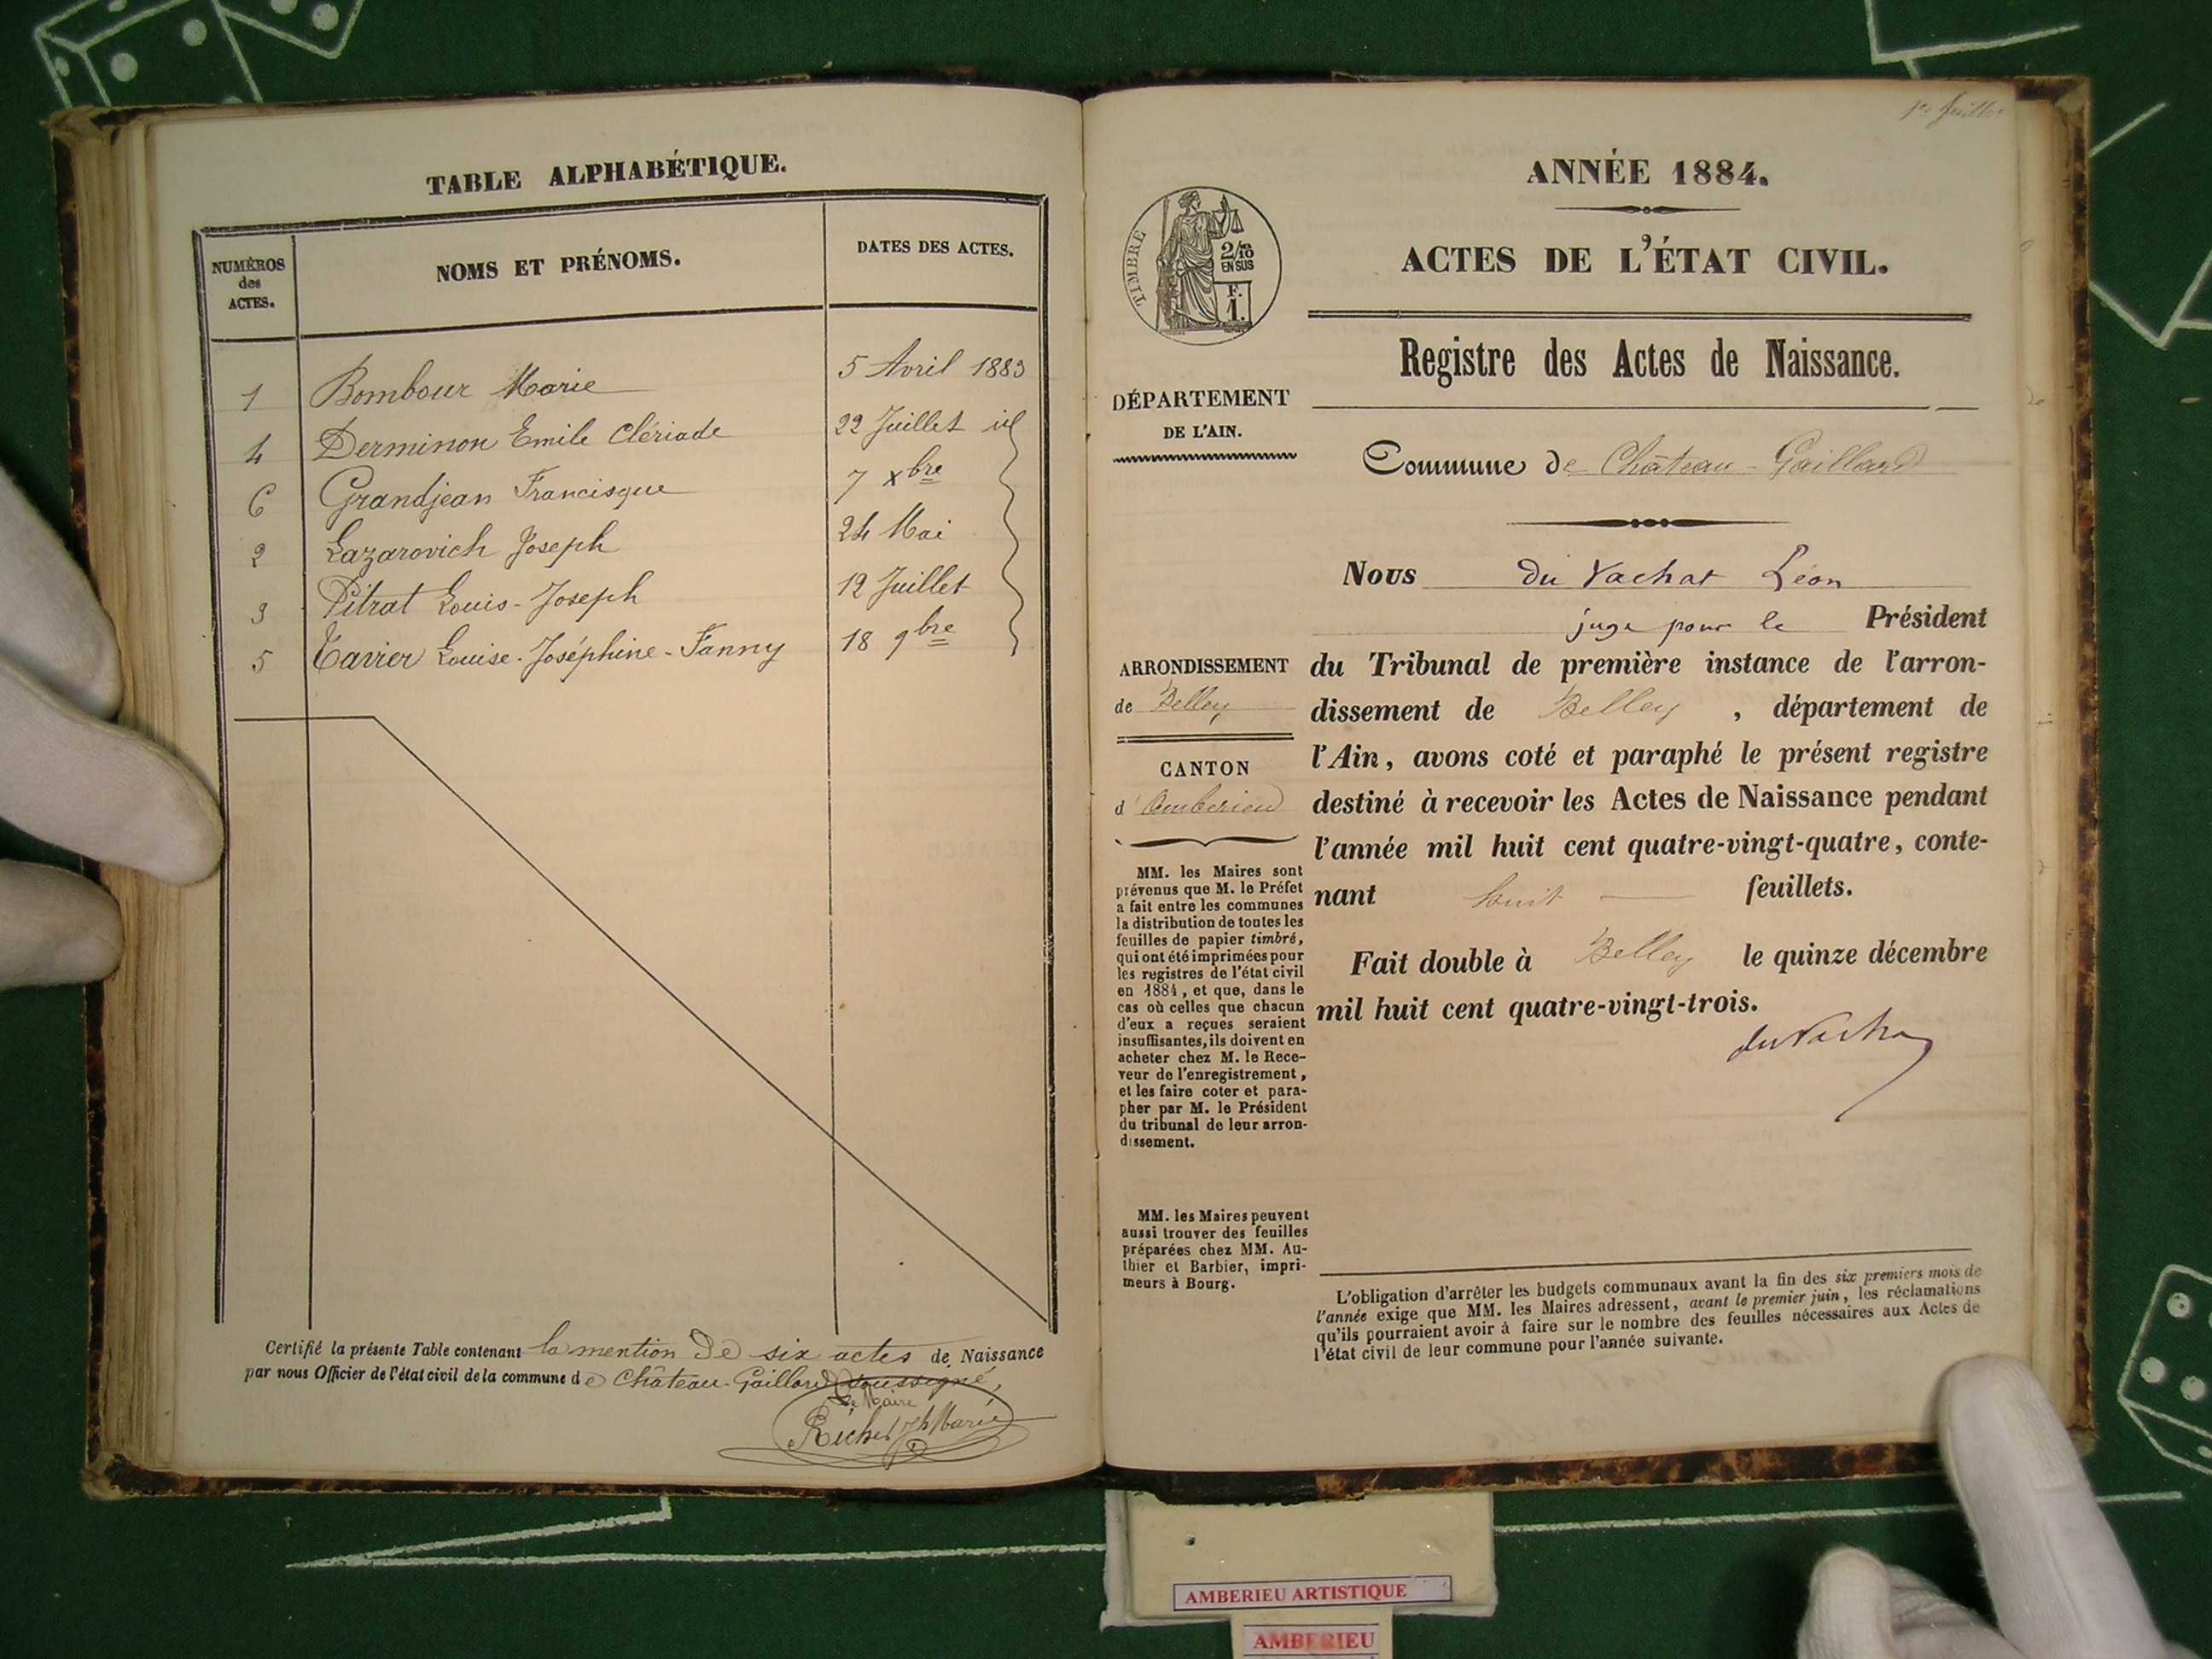 TABLE ALPHABÉTIQUE.
NUMÉROS des ACTES.
NOMS ET PRÉNOMS.
DATES DES ACTES.
1 Bombour Marie 5 Avril 1883
4 Derminon Emile Clériade 22 Juillet id
6 Grandjean Francisque 7 xbre
2 Lazarovich Joseph 24 Mai
3 Pitrat Louis-Joseph 12 Juillet
5 Tavier Louise-Joséphine-Fanny 18 9bre
Certifié la présente Table contenant la mention de six actes de Naissance
par nous Officier de l'état civil de la commune de Château-Gaillard soussigné,
Le Maire
Richet Jh Marie
1er feuillet
ANNÉE 1884.
ACTES DE L'ÉTAT CIVIL.
TIMBRE
2/10
EN SUS
F.
1.
Registre des Actes de Naissance.
DÉPARTEMENT
DE L'AIN.
Commune de Château-Gaillard
Nous du Vachat Léon
juge pour le Président
ARRONDISSEMENT
de Belley
CANTON
d'Amberieu
du Tribunal de première instance de l'arron-
dissement de Belley, département de
l'Ain, avons coté et paraphé le présent registre
destiné à recevoir les Actes de Naissance pendant
l'année mil huit cent quatre-vingt-quatre, conte-
nant huit feuillets.
Fait double à Belley le quinze décembre
mil huit cent quatre-vingt-trois.
du Vachat
MM. les Maires sont
prévenus que M. le Préfet
a fait entre les communes
la distribution de toutes les
feuilles de papier timbré,
qui ont été imprimées pour
les registres de l'état civil
en 1884, et que, dans le
cas où celles que chacun
d'eux a reçues seraient
insuffisantes, ils doivent en
acheter chez M. le Rece-
veur de l'enregistrement,
et les faire coter et para-
pher par M. le Président
du tribunal de leur arron-
dissement.
MM. les Maires peuvent
aussi trouver des feuilles
préparées chez MM. Au-
thier et Barbier, impri-
meurs à Bourg.
L'obligation d'arrêter les budgets communaux avant la fin des six premiers mois de
l'année exige que MM. les Maires adressent, avant le premier juin, les réclamations
qu'ils pourraient avoir à faire sur le nombre des feuilles nécessaires aux Actes de
l'état civil de leur commune pour l'année suivante.
AMBERIEU ARTISTIQUE
AMBERIEU